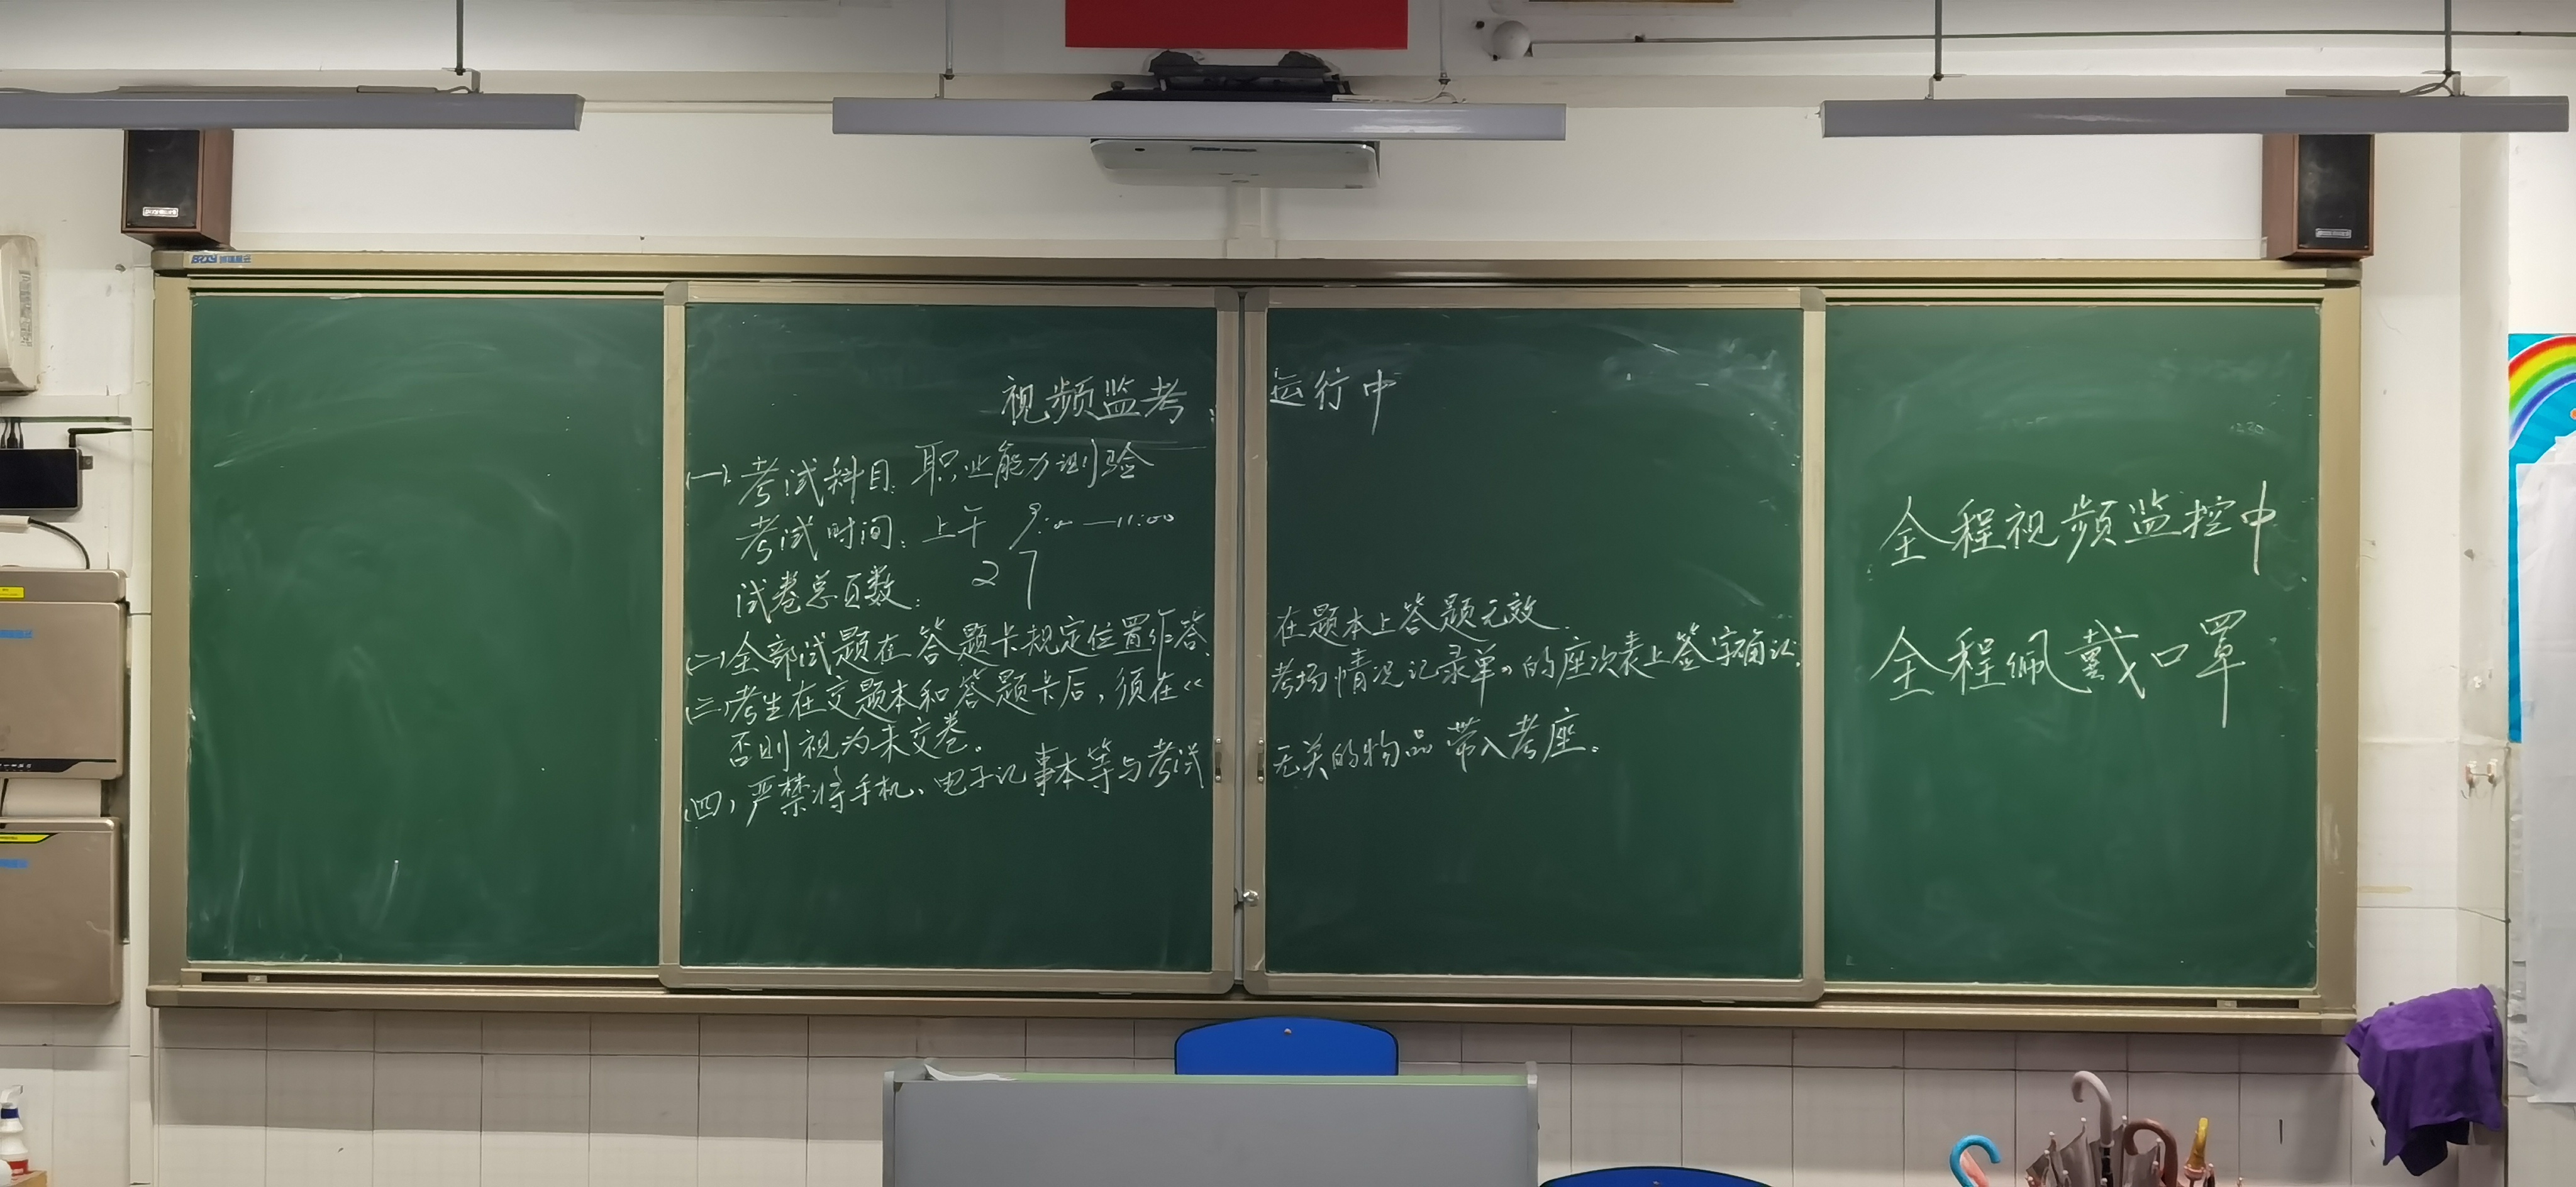 视频监考运行中
(一).考试科目:职业能力测验
考试时间:上午 9:00—11:00
试卷总页数: 27
(二)全部试题在答题卡规定位置作答,在题本上答题无效.
(三)考生在交题本和答题卡后,须在《考场情况记录单》的座次表上签字确认,
否则视为未交卷。
(四)严禁将手机、电子记事本等与考试无关的物品带入考座。
全程视频监控中
全程佩戴口罩